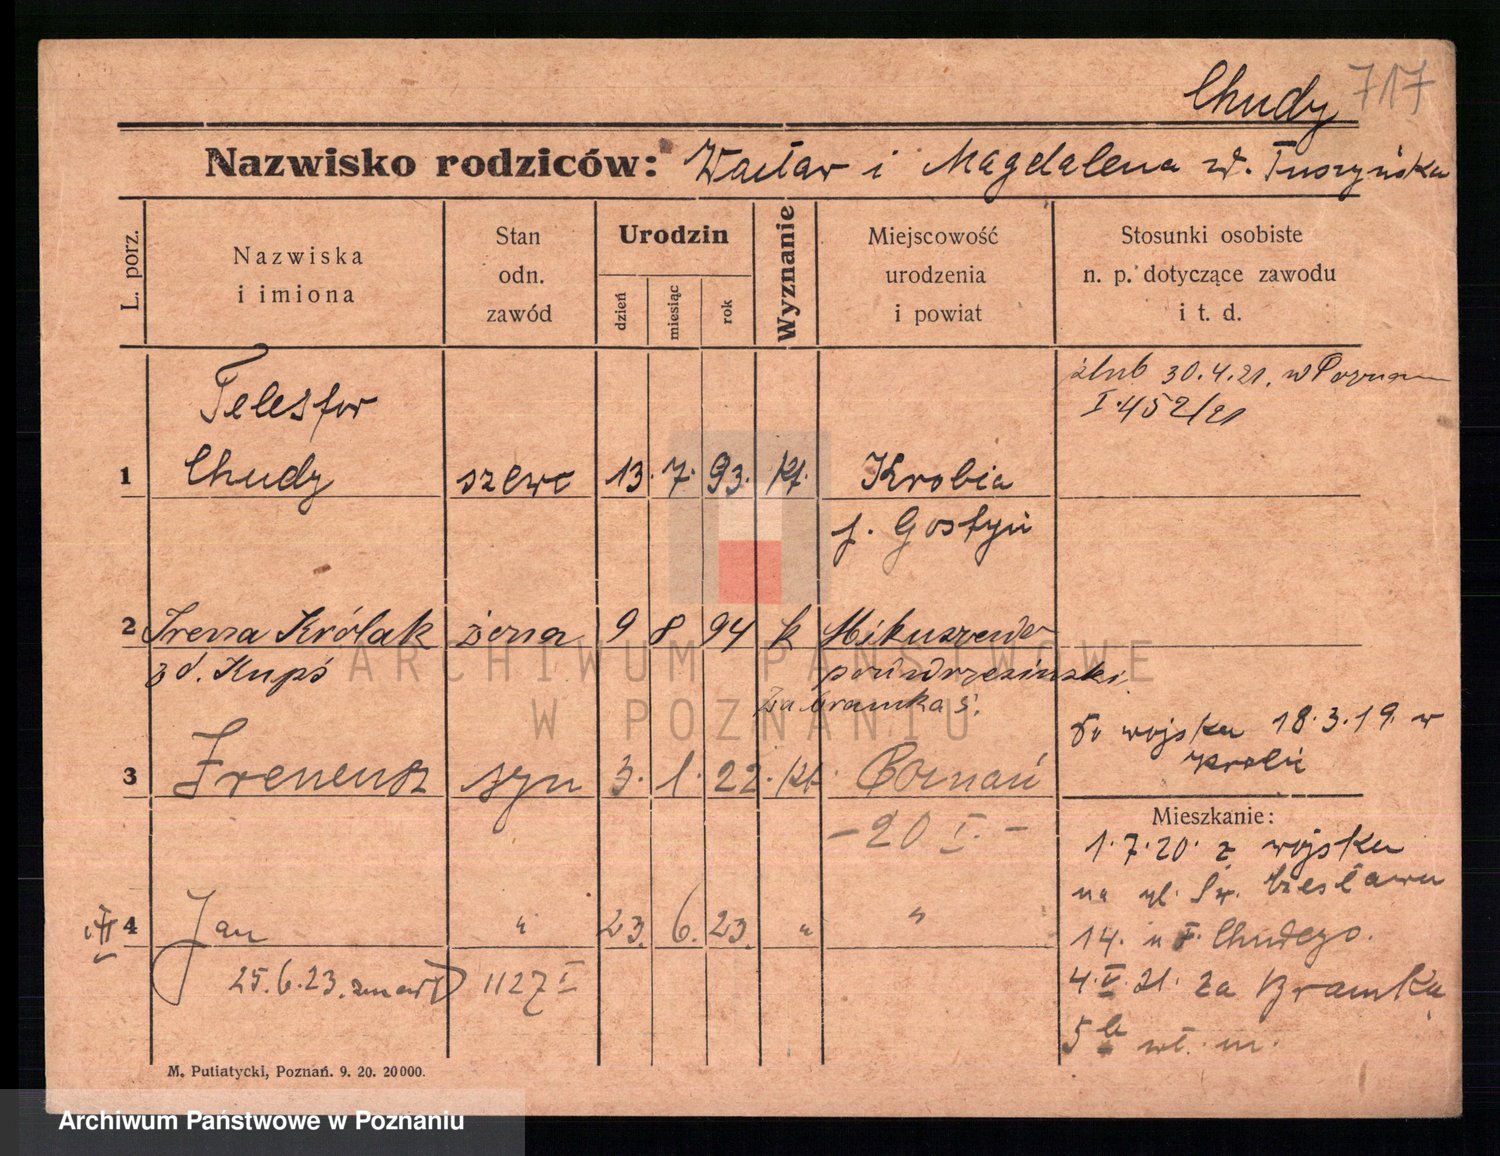 Chudy 717
Nazwisko rodziców: Wacław i Magdalena zd. Tuszyńska
L. porz.
Nazwiska
i imiona
Stan
odn.
zawód
Urodzin
dzień
miesiąc
rok
Wyznanie
Miejscowość
urodzenia
i powiat
Stosunki osobiste
n. p. dotyczące zawodu
i t. d.
ślub 30.4.21. w Poznan
I.452/21
Telesfor
1 Chudy szewc 13. 7. 93. kt. Krobia
p. Gostyń
2 Irena Królak żona 9 8 94 k Mikuszewo
zd. Kupś pow wrzesiński
Za Bramką 5.
do wojska 18.3.19. w
Krobii
3 Ireneusz syn 3. 1. 22. kt. Poznań
- 20 I. -
Mieszkanie:
1.7.20. z wojska
na ul. Św. Czesława
14. u T. Chudego.
4 Jan " 23. 6. 23. " "
25.6.23. zmarł 1127 I
4.V.21. Za Bramką
5 wł. m.
M. Putiatycki, Poznań. 9. 20. 20 000.
ARCHIWUM PAŃSTWOWE
W POZNANIU
Archiwum Państwowe w Poznaniu